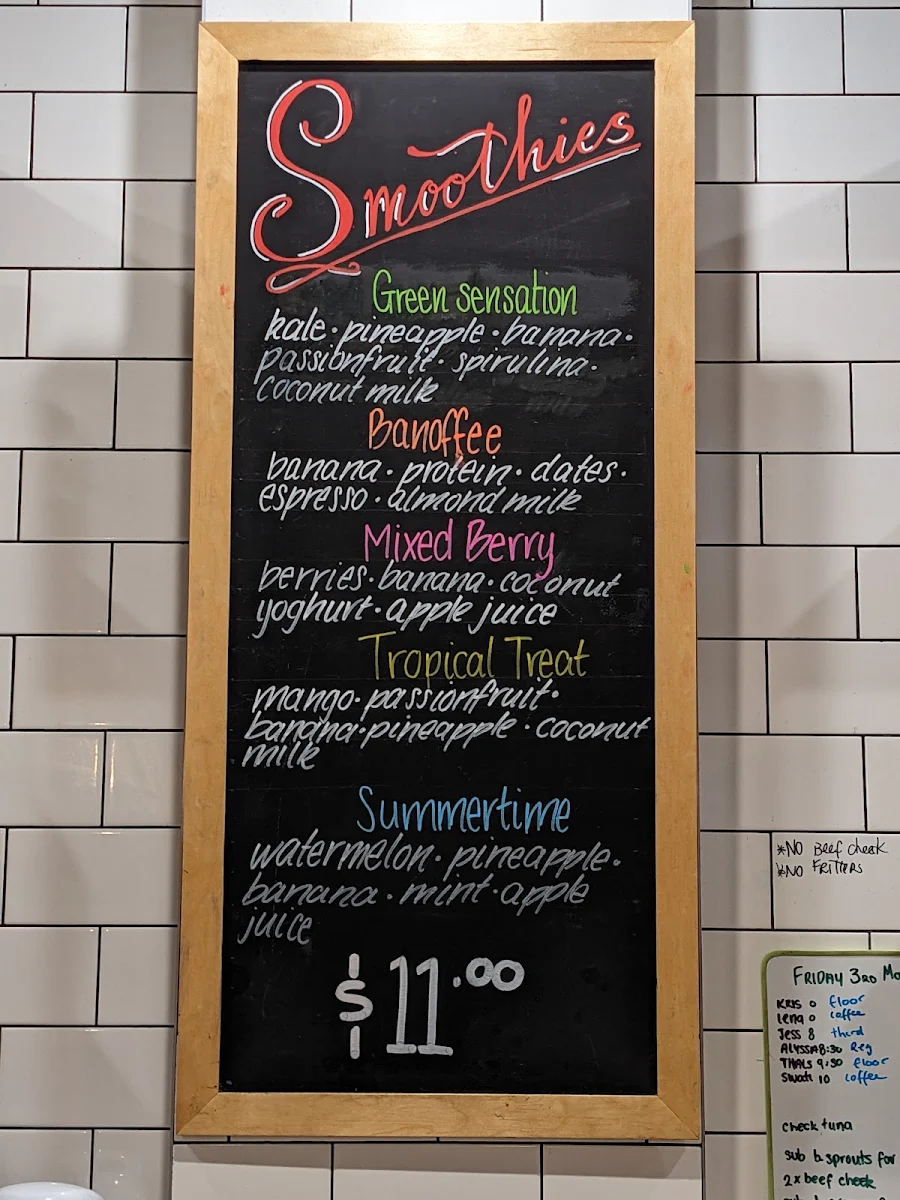 Smoothies
Green sensation
kale · pineapple · banana ·
passionfruit · spirulina ·
coconut milk
Banoffee
banana · protein · dates ·
espresso · almond milk
Mixed Berry
berries · banana · coconut
yoghurt · apple juice
Tropical Treat
mango · passionfruit ·
banana · pineapple · coconut
milk
Summertime
watermelon · pineapple ·
banana · mint · apple
juice
$11.00
*NO Beef cheek
*NO FRITTERS
FRIDAY 3RD
KRIS 0 floor
Lena 0 coffee
Jess 8 third
ALYSSA 8:30 Reg
THAIS 9:30 floor
Swati 10 coffee
check tuna
sub b.sprouts for
2x beef cheek